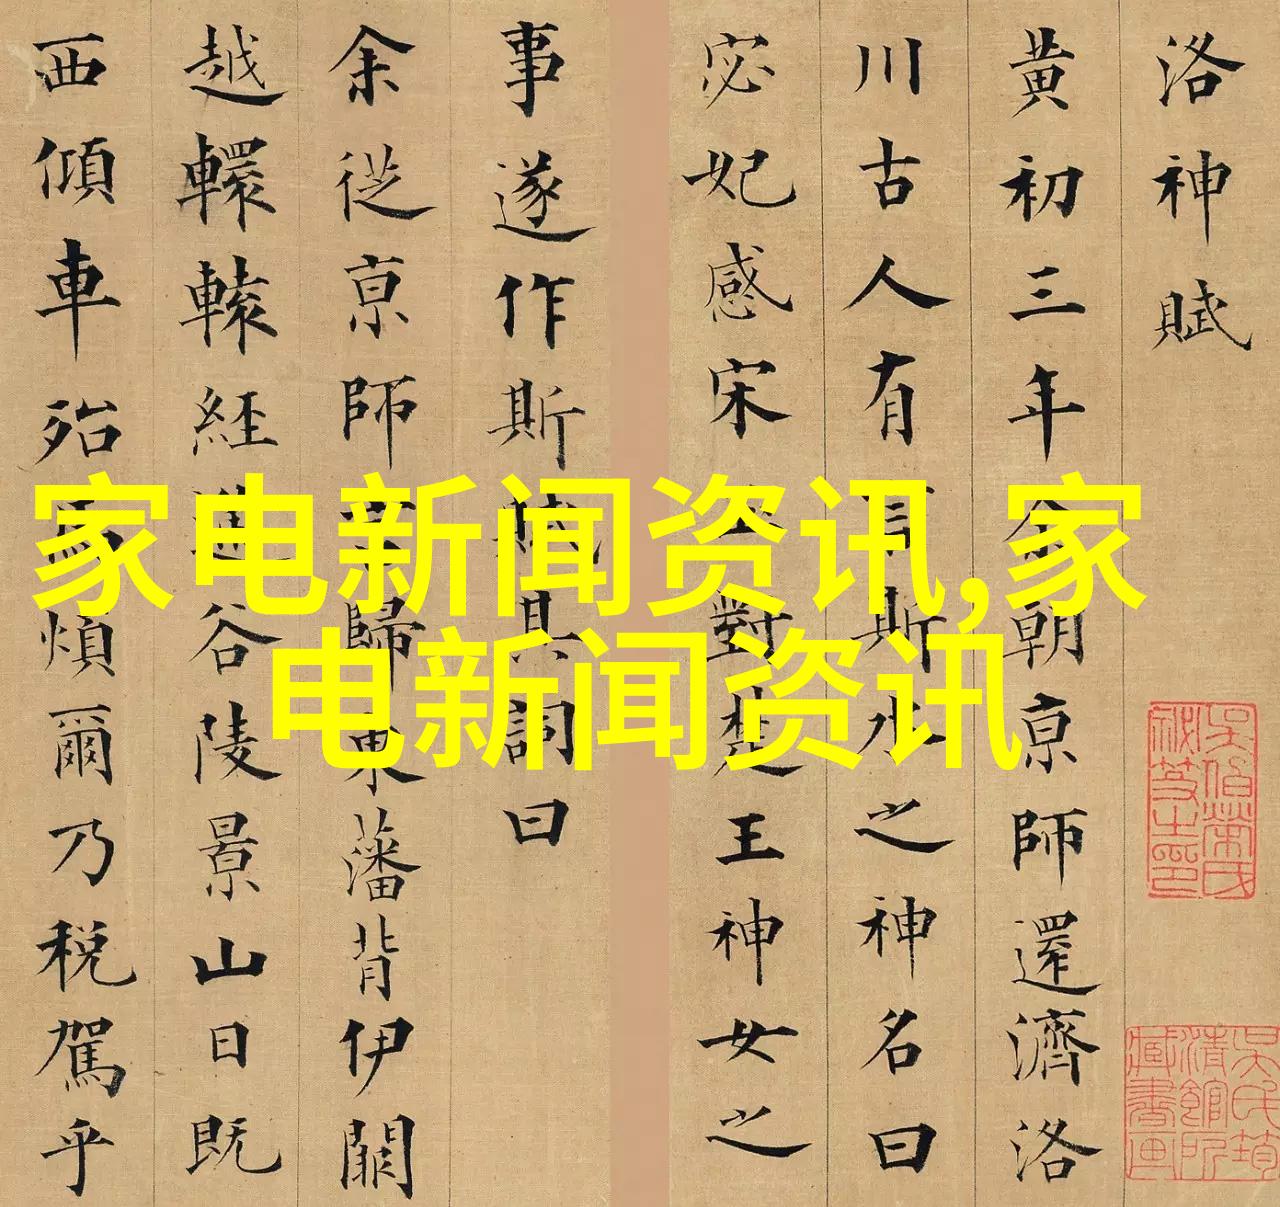 洛神賦
黄初三年余朝亰師還濟洛
川古人有言斯水之神名曰
宓妃感宋玉對楚王神女之
事遂作斯賦其詞曰
余從亰師言歸東藩背伊闕
越轘轅經通谷陵景山日既
西傾車殆馬煩爾乃税駕乎
家电新闻资讯,家
电新闻资讯
吴氏筠
清館所
藏書画